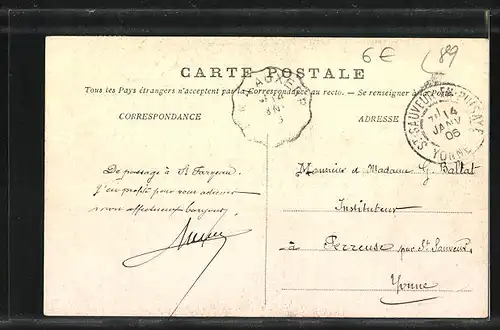 6€ 89
CARTE POSTALE
Tous les Pays étrangers n'acceptent pas la Correspondance au recto. — Se renseigner à la Poste
CORRESPONDANCE
ADRESSE
ST-SAUVEUR-EN-PUISAYE
14
JANV
06
YONNE
De passage à St Fargeau
J'en profite pour vous adresser
mon affectueux bonjour.
Monsieur et Madame G. Ballat
Instituteur
à Perreuse par St Sauveur,
Yonne